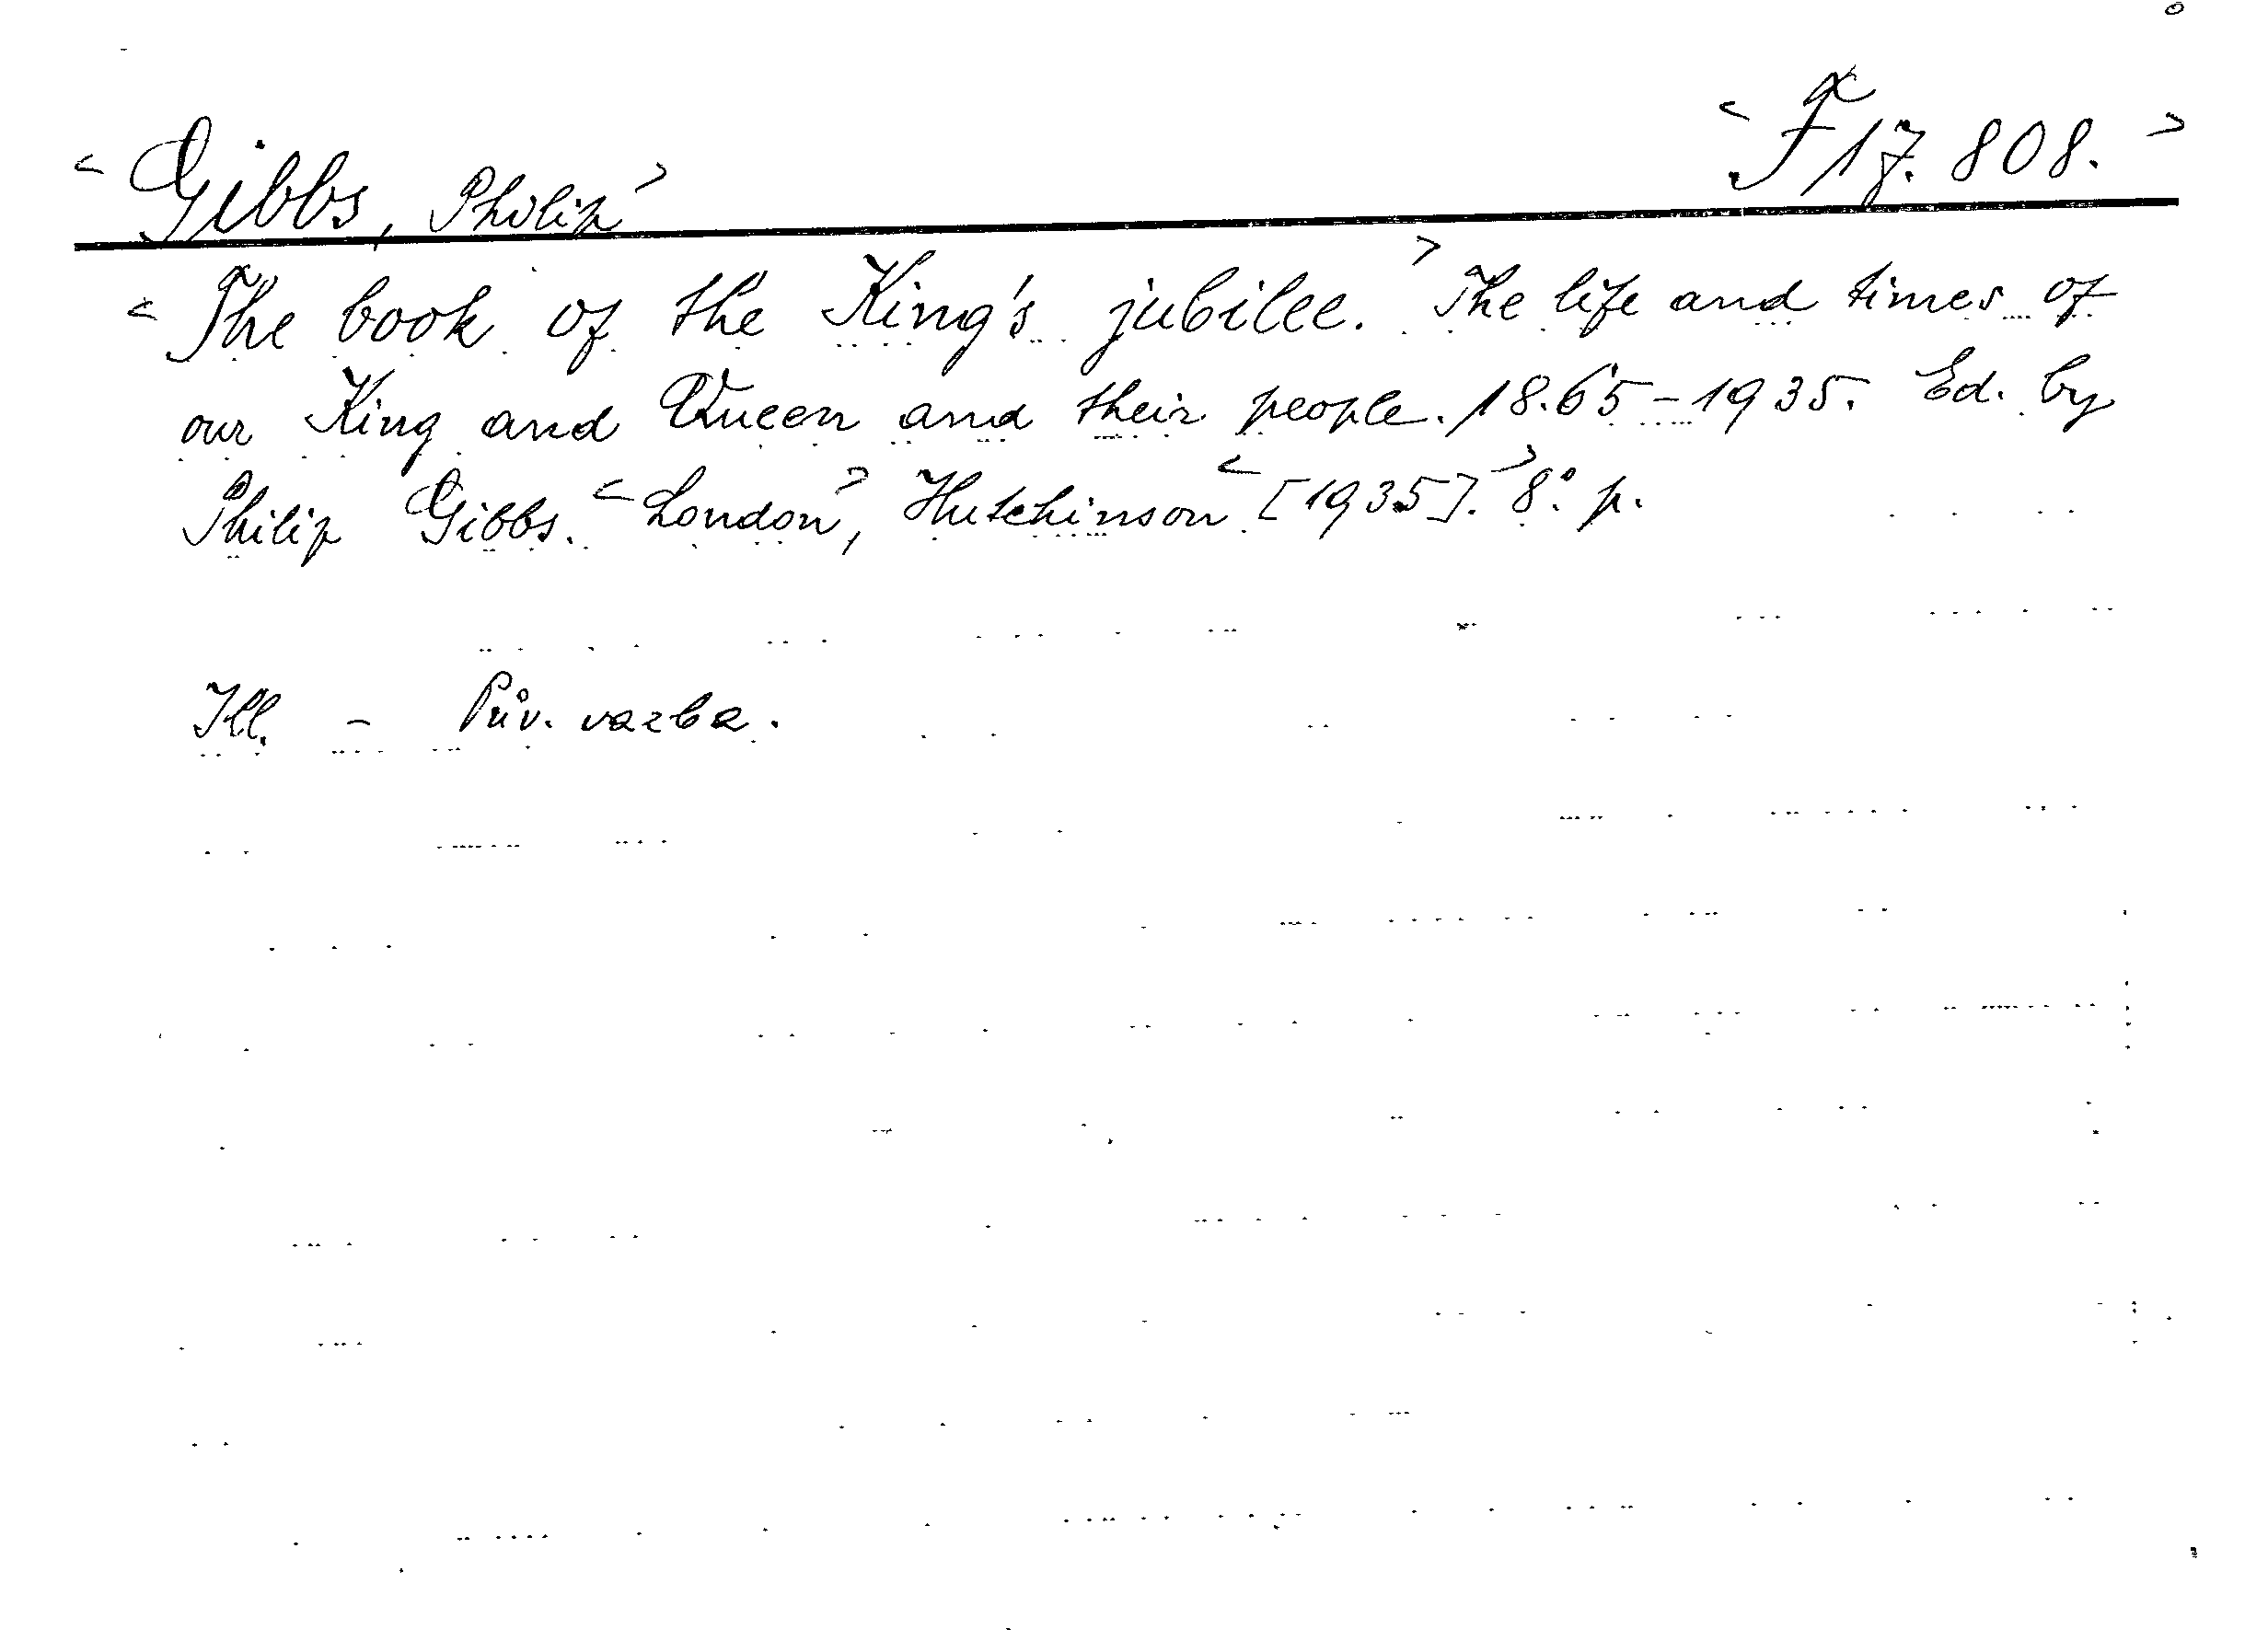 <Gibbs, Philip> <F 17.808.>
<The book of the King's jubilee.> The life and times of
our King and Queen and their people. 1865-1935. Ed. by
Philip Gibbs. <London>, Hutchinson <[1935].> 8°. p.
Ill. - Pův. vazba.